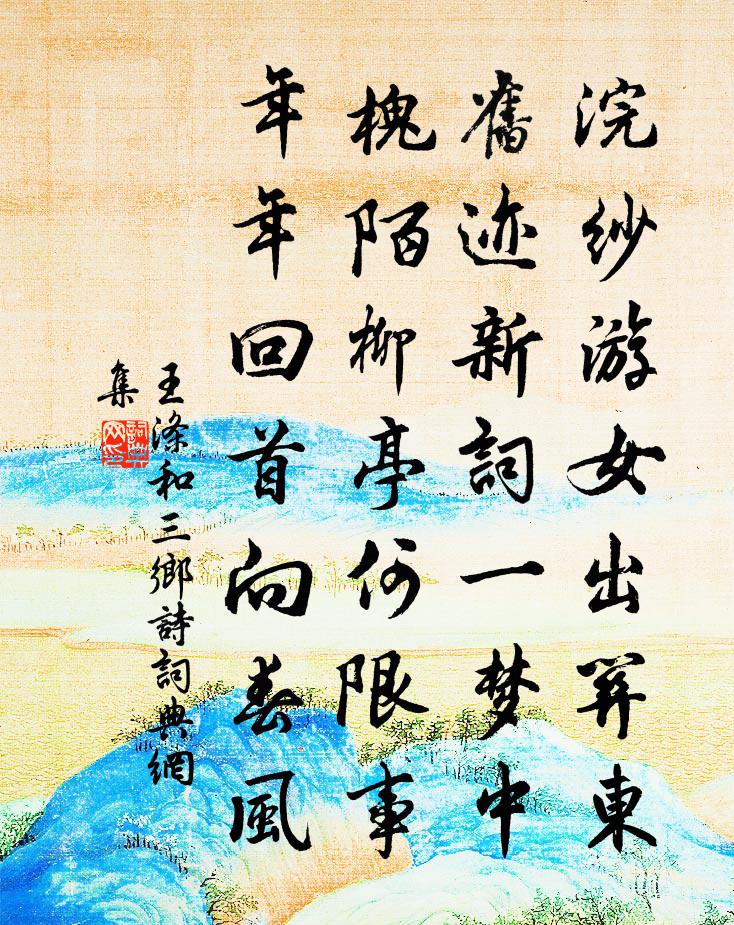 浣紗游女出關東
舊迹新詞一梦中
槐陌柳亭何限事
年年回首向春風
王滌和三鄉詩詞典網
集